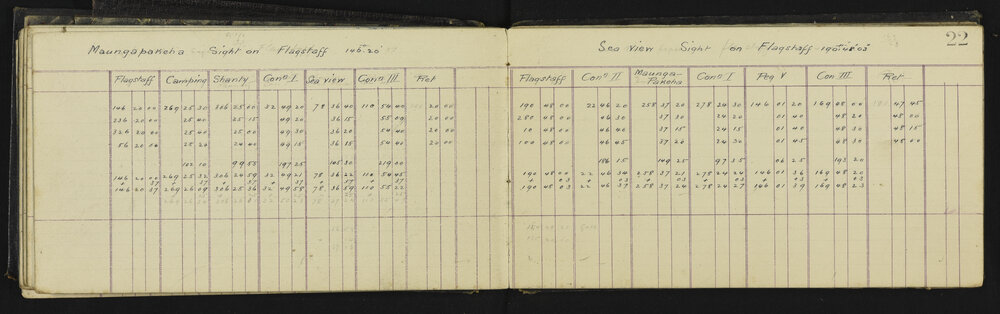 Maungapakeha Sight on Flagstaff 146°20'
Flagstaff Camping Shanty Conn I. Sea view Conn III. Ret
146 20 00 269 25 30 306 25 00 32 49 20 78 36 40 110 54 40 20 00
236 20 00 25 40 25 15 49 20 36 15 55 00 20 00
326 20 00 25 40 25 00 49 30 36 20 54 40 20 00
56 20 00 25 20 24 40 49 15 36 15 54 40 20 00
102 10 99 55 197 25 105 30 219 00
146 20 00 269 25 32 306 24 59 32 49 21 78 36 22 110 54 45
+ 37 + 37 + 37 + 37 + 37 + 37
146 20 37 269 26 09 306 25 36 32 49 58 78 36 59 110 55 22
22
Sea view Sight on Flagstaff 190°48'03"
Flagstaff Conn II Maunga-Pakeha Conn I Peg V Con III. Ret
190 48 00 22 46 20 258 37 20 278 24 30 146 01 20 169 48 00 47 45
280 48 00 46 30 37 30 24 20 01 40 48 20 48 00
10 48 00 46 40 37 15 24 15 01 40 48 30 48 15
100 48 00 46 45 37 20 24 30 01 45 48 30 48 00
186 15 149 25 97 35 06 25 193 20
190 48 00 22 46 34 258 37 21 278 24 24 146 01 36 169 48 20
+ 03 + 03 + 03 + 03 + 03 + 03
190 48 03 22 46 37 258 37 24 278 24 27 146 01 39 169 48 23